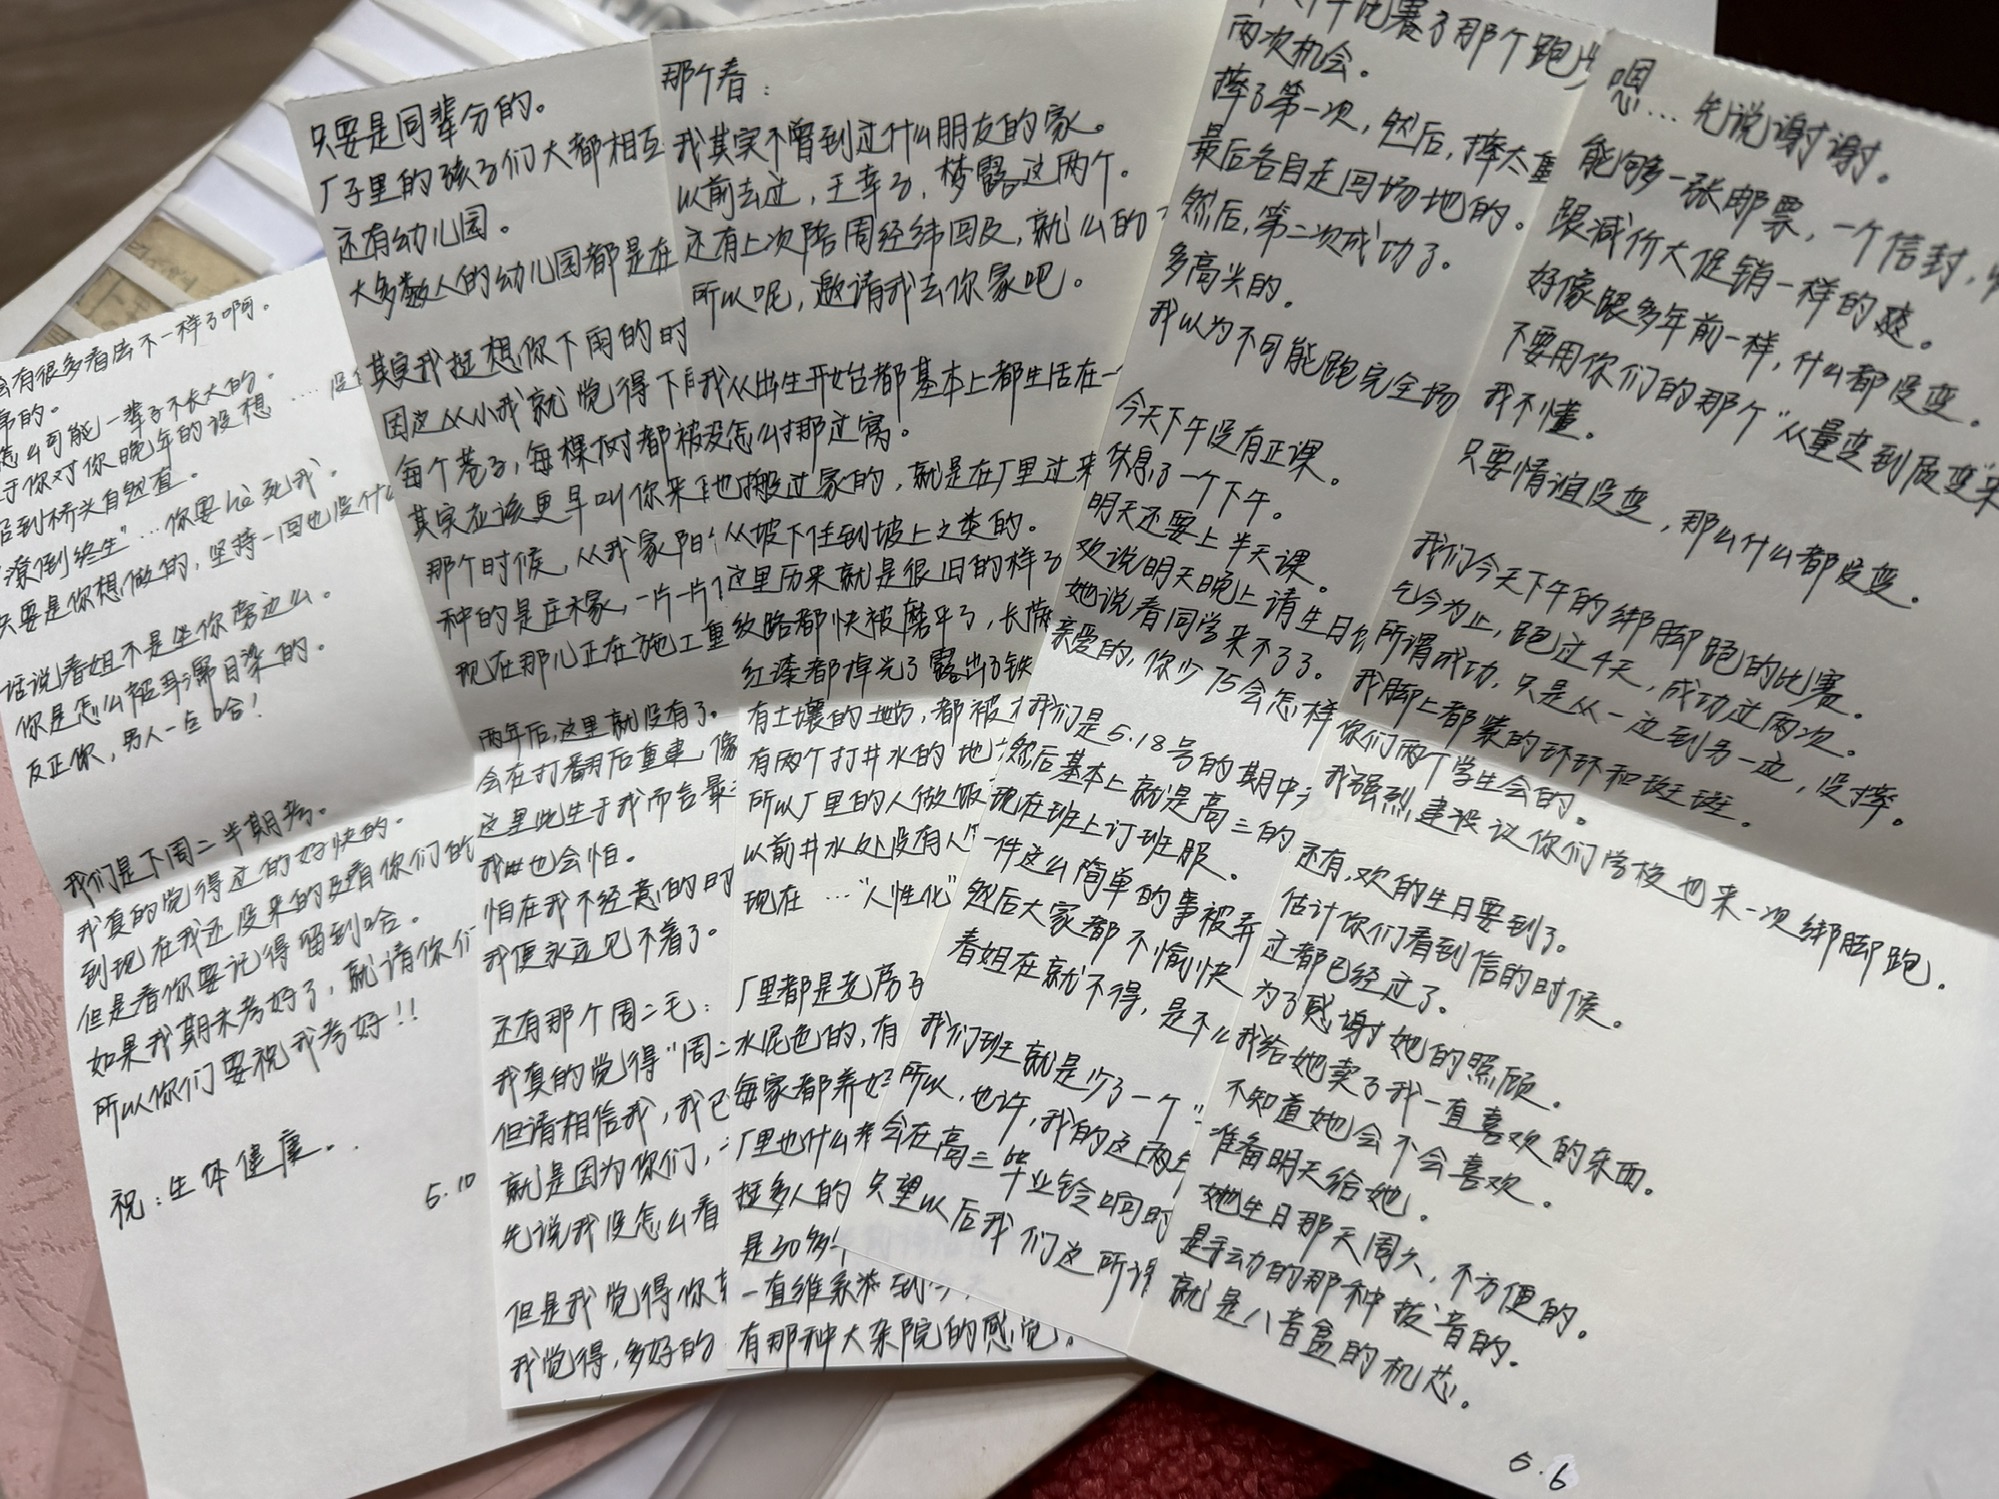 会有很多看法不一样了啊。
怎么可能一辈子不长大的。
于你对你晚年的设想……没
后到桥头自然直。
潦倒终生”…你要he死我。
只要是你想做的，坚持一回也没什么
话说春姐不是坐你旁边么。
你是怎么被耳濡目染的。
反正你，男人一点哈！
我们是下周二半期考。
我真的觉得过的好快的。
到现在我还没来的及看你们的
但是看你要记得留到哈。
如果我期末考好了，就请你们
所以你们要祝我考好!!
祝：生体健康..
5.10
只要是同辈分的。
厂子里的孩子们大都相互
还有幼儿园。
大多数人的幼儿园都是在
其实我挺想你下雨的时
因这从小我就觉得下雨
每个巷子，每棵树都被
其实应该更早叫你来
那个时候，从我家阳
种的是庄稼，一片一片
现在那儿正在施工重
两年后，这里就没有了。
会在打翻后重建，像
这里此生于我而言最
我也会怕。
怕在我不经意的时
我便永远见不着了。
还有那个周二毛：
我真的觉得“周二
但请相信我，我已
就是因为你们，
先说我没怎么看
但是我觉得你
我觉得，多好的
那个春：
我其实不曾到过什么朋友的家。
以前去过，王幸子，梦露这两个。
还有上次陪周经纬回及，就么的
所以呢，邀请我去你家吧。
我从出生开始台都基本上都生活在一
没怎么挪过窝。
也搬过家的，就是在厂里过来
从坡下住到坡上之类的。
这里历来就是很旧的样子
纹路都快被磨平了，长
红漆都掉光了露出了铁
有土壤的地方，都被
有两个打井水的地
所以厂里的人做饭
以前井水处没有人
现在…“人性化”
厂里都是老房子
水泥色的，有
每家都养好
厂里也什么
挺多人的
是30多
一直维系
有那种大杂院的感觉。
比赛了那个跑
两次机会。
摔了第一次，然后，摔太重
最后各自走回场地的。
然后，第二次成功了。
多高兴的。
我以为不可能跑完全场
今天下午没有正课。
休息了一个下午。
明天还要上半天课。
欢说明天晚上请生日
她说春同学来不了了。
亲爱的，你少75会怎样
我们是5.18号的期中
然后基本上就是高三的
现在班上订班服。
一件这么简单的事被弄
然后大家都不愉快
春姐在就不得，是不
我们班就是少了一个“
所以，也许，我的这两年
会在高三毕业铃响时
只望以后我们这所谓
嗯…先说谢谢。
能够多一张邮票，一个信封，
跟减价大促销一样的爽。
好像跟多年前一样，什么都没变。
不要用你们的那个“从量变到质变”来
我不懂。
只要情谊没变，那么什么都没变。
我们今天下午的绑脚跑的比赛。
乞今为止，跑过4天，成功过两次。
所谓成功，只是从一边到另一边，没摔。
我脚上都累的环环和斑斑。
你们两个学生会的。
我强烈建设议你们学校也来一次绑脚跑。
还有，欢的生日要到了。
估计你们看到信的时候。
过都已经过了。
为了感谢她的照顾。
我给她卖了我一直喜欢的东西。
不知道她会不会喜欢。
准备明天给她。
她生日那天周六，不方便的。
是手动的那种拔音的。
就是八音盒的机芯。
5.6